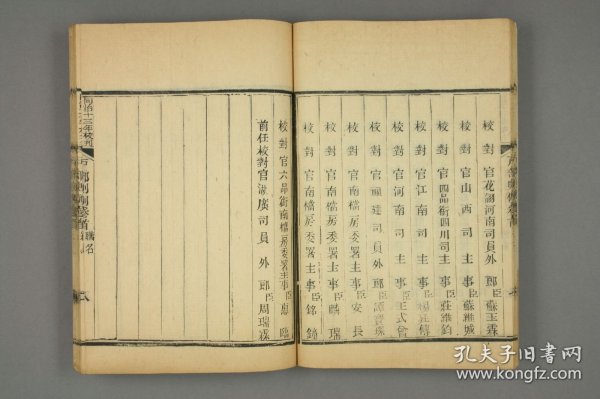 校對官花翎河南司員外郎臣蘇玉霖
校對官山西司主事臣蘇維城
校對官四品銜四川司主事臣莊維鈞
校對官江南司主事臣
校對官河南司主事臣王式曾
校對官福建司員外郎臣譚寶琛
校對官南檔房委署主事臣安長
校對官南檔房委署主事臣麟瑞
校對官南檔房委署主事臣銘鐘
校對官六品銜南檔房委署主事臣惠臨
前任校對官湖廣司員外郎臣周瑞霖
同治十三年校刊
户部則例
卷首
職名
孔夫子旧書网
www.kongfz.com